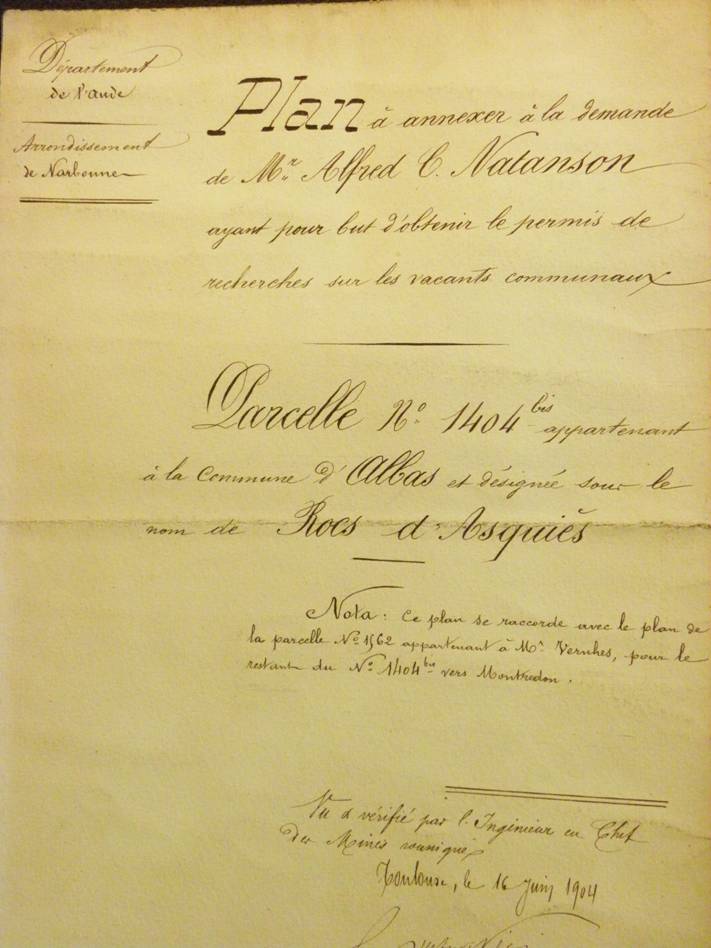 Département
de l'Aude
Arrondissement
de Narbonne
Plan à annexer à la demande
de Mr. Alfred C. Natanson
ayant pour but d'obtenir le permis de
recherches sur les vacants communaux
Parcelle No. 1404 bis appartenant
à la Commune d'Albas et désignée sous le
nom de Rocs d'Asquiès
Nota: Ce plan se raccorde avec le plan de
la parcelle No 1562 appartenant à Mr. Vernhes, pour le
restant du No 1404 bis vers Montredon.
Vu & vérifié par l'Ingénieur en Chef
des Mines soussigné
Toulouse, le 16 Juin 1904